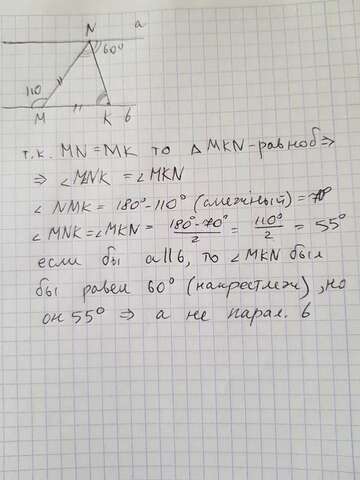 N a
60°
110
M K б
т.к. MN = MK то △ MKN - равноб ⇒
⇒ ∠MNK = ∠MKN
∠ NMK = 180° - 110° (смежный) = 70°
∠ MNK = ∠MKN = 180° - 70° / 2 = 110° / 2 = 55°
если бы a || б, то ∠ MKN был
бы равен 60° (накрестлеж), но
он 55° ⇒ a не парал. б